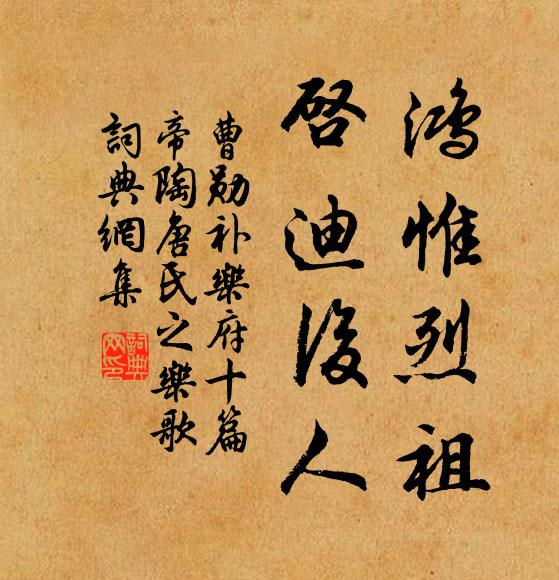 鴻惟烈祖
啓迪後人
曹勛补樂府十篇
帝陶唐氏之樂歌
詞典網集
詞典網印